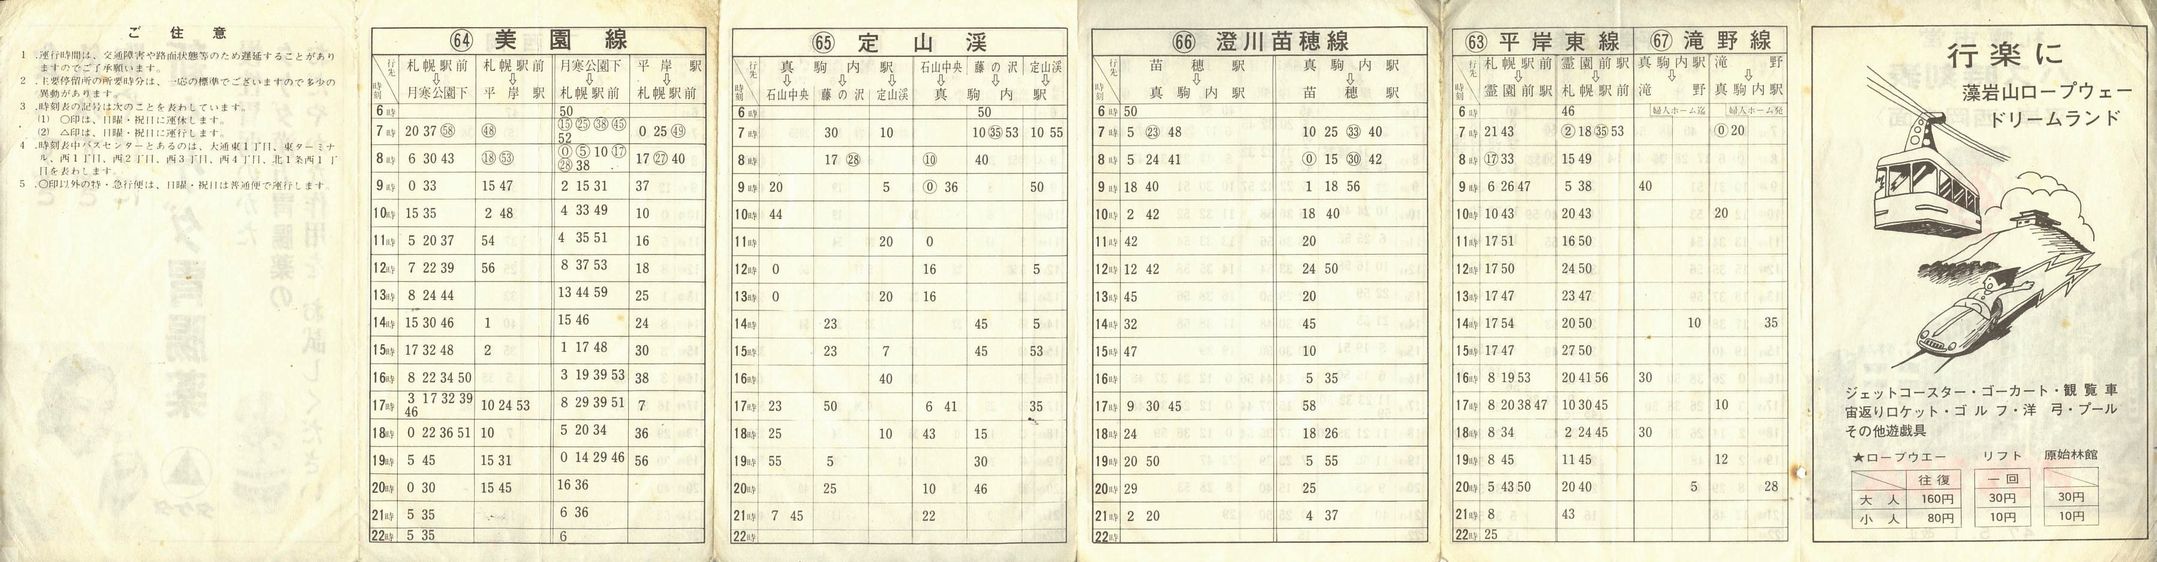 ご住意
1．運行時間は、交通障害や路面状態等のため遅延することがあり
ますのでご了承願います。
2．主要停留所の所要時分は、一応の標準でございますので多少の
異動があります。
3．時刻表の記号は次のことを表わしています。
(1) ○印は、日曜・祝日に運休します。
(2) △印は、日曜・祝日に運行します。
4．時刻表中バスセンターとあるのは、大通東1丁目、東ターミナ
ル、西1丁目、西2丁目、西3丁目、西4丁目、北1条西1丁
目を表わします。
5．○印以外の特・急行便は、日曜・祝日は普通便で運行します。
64 美園線
行先 時刻 札幌駅前⇩月寒公園下 札幌駅前⇩平岸駅 月寒公園下⇩札幌駅前 平岸駅⇩札幌駅前
6時 50
7時 20 37 58 48 15 25 38 45 52 0 25 49
8時 6 30 43 18 53 0 5 10 17 28 38 17 27 40
9時 0 33 15 47 2 15 31 37
10時 15 35 2 48 4 33 49 10
11時 5 20 37 54 4 35 51 16
12時 7 22 39 56 8 37 53 18
13時 8 24 44 13 44 59 25
14時 15 30 46 1 15 46 24
15時 17 32 48 2 1 17 48 30
16時 8 22 34 50 3 19 39 53 38
17時 3 17 32 39 46 10 24 53 8 29 39 51 7
18時 0 22 36 51 10 5 20 34 36
19時 5 45 15 31 0 14 29 46 56
20時 0 30 15 45 16 36
21時 5 35 6 36
22時 5 35 6
65 定山渓
行先 時刻 真駒内駅⇩石山中央 藤の沢 定山渓 石山中央 藤の沢 定山渓⇩真駒内駅
6時 50
7時 30 10 10 35 53 10 55
8時 17 28 10 40
9時 20 5 0 36 50
10時 44
11時 20 0
12時 0 16 5
13時 0 20 16
14時 23 45 5
15時 23 7 45 53
16時 40
17時 23 50 6 41 35
18時 25 10 43 15
19時 55 5 30
20時 25 10 46
21時 7 45 22
22時
66 澄川苗穂線
行先 時刻 苗穂駅⇩真駒内駅 真駒内駅⇩苗穂駅
6時 50
7時 5 23 48 10 25 33 40
8時 5 24 41 0 15 30 42
9時 18 40 1 18 56
10時 2 42 18 40
11時 42 20
12時 12 42 24 50
13時 45 20
14時 32 45
15時 47 10
16時 5 35
17時 9 30 45 58
18時 24 18 26
19時 20 50 5 55
20時 29 25
21時 2 20 4 37
22時
63 平岸東線 67 滝野線
行先 時刻 札幌駅前⇩霊園前駅 霊園前駅⇩札幌駅前 真駒内駅⇩滝野 滝野⇩真駒内駅
6時 46 婦人ホーム迄 婦人ホーム発
7時 21 43 2 18 35 53 0 20
8時 17 33 15 49
9時 6 26 47 5 38 40
10時 10 43 20 43 20
11時 17 51 16 50
12時 17 50 24 50
13時 17 47 23 47
14時 17 54 20 50 10 35
15時 17 47 27 50
16時 8 19 53 20 41 56 30
17時 8 20 38 47 10 30 45 10
18時 8 34 2 24 45 30
19時 8 45 11 45 12
20時 5 43 50 20 40 5 28
21時 8 43
22時 25
行楽に
藻岩山ロープウェー
ドリームランド
ジェットコースター・ゴーカート・観覧車
宙返りロケット・ゴルフ・洋弓・プール
その他遊戯具
★ロープウエー リフト 原始林館
往復 一回
大人 160円 30円 30円
小人 80円 10円 10円